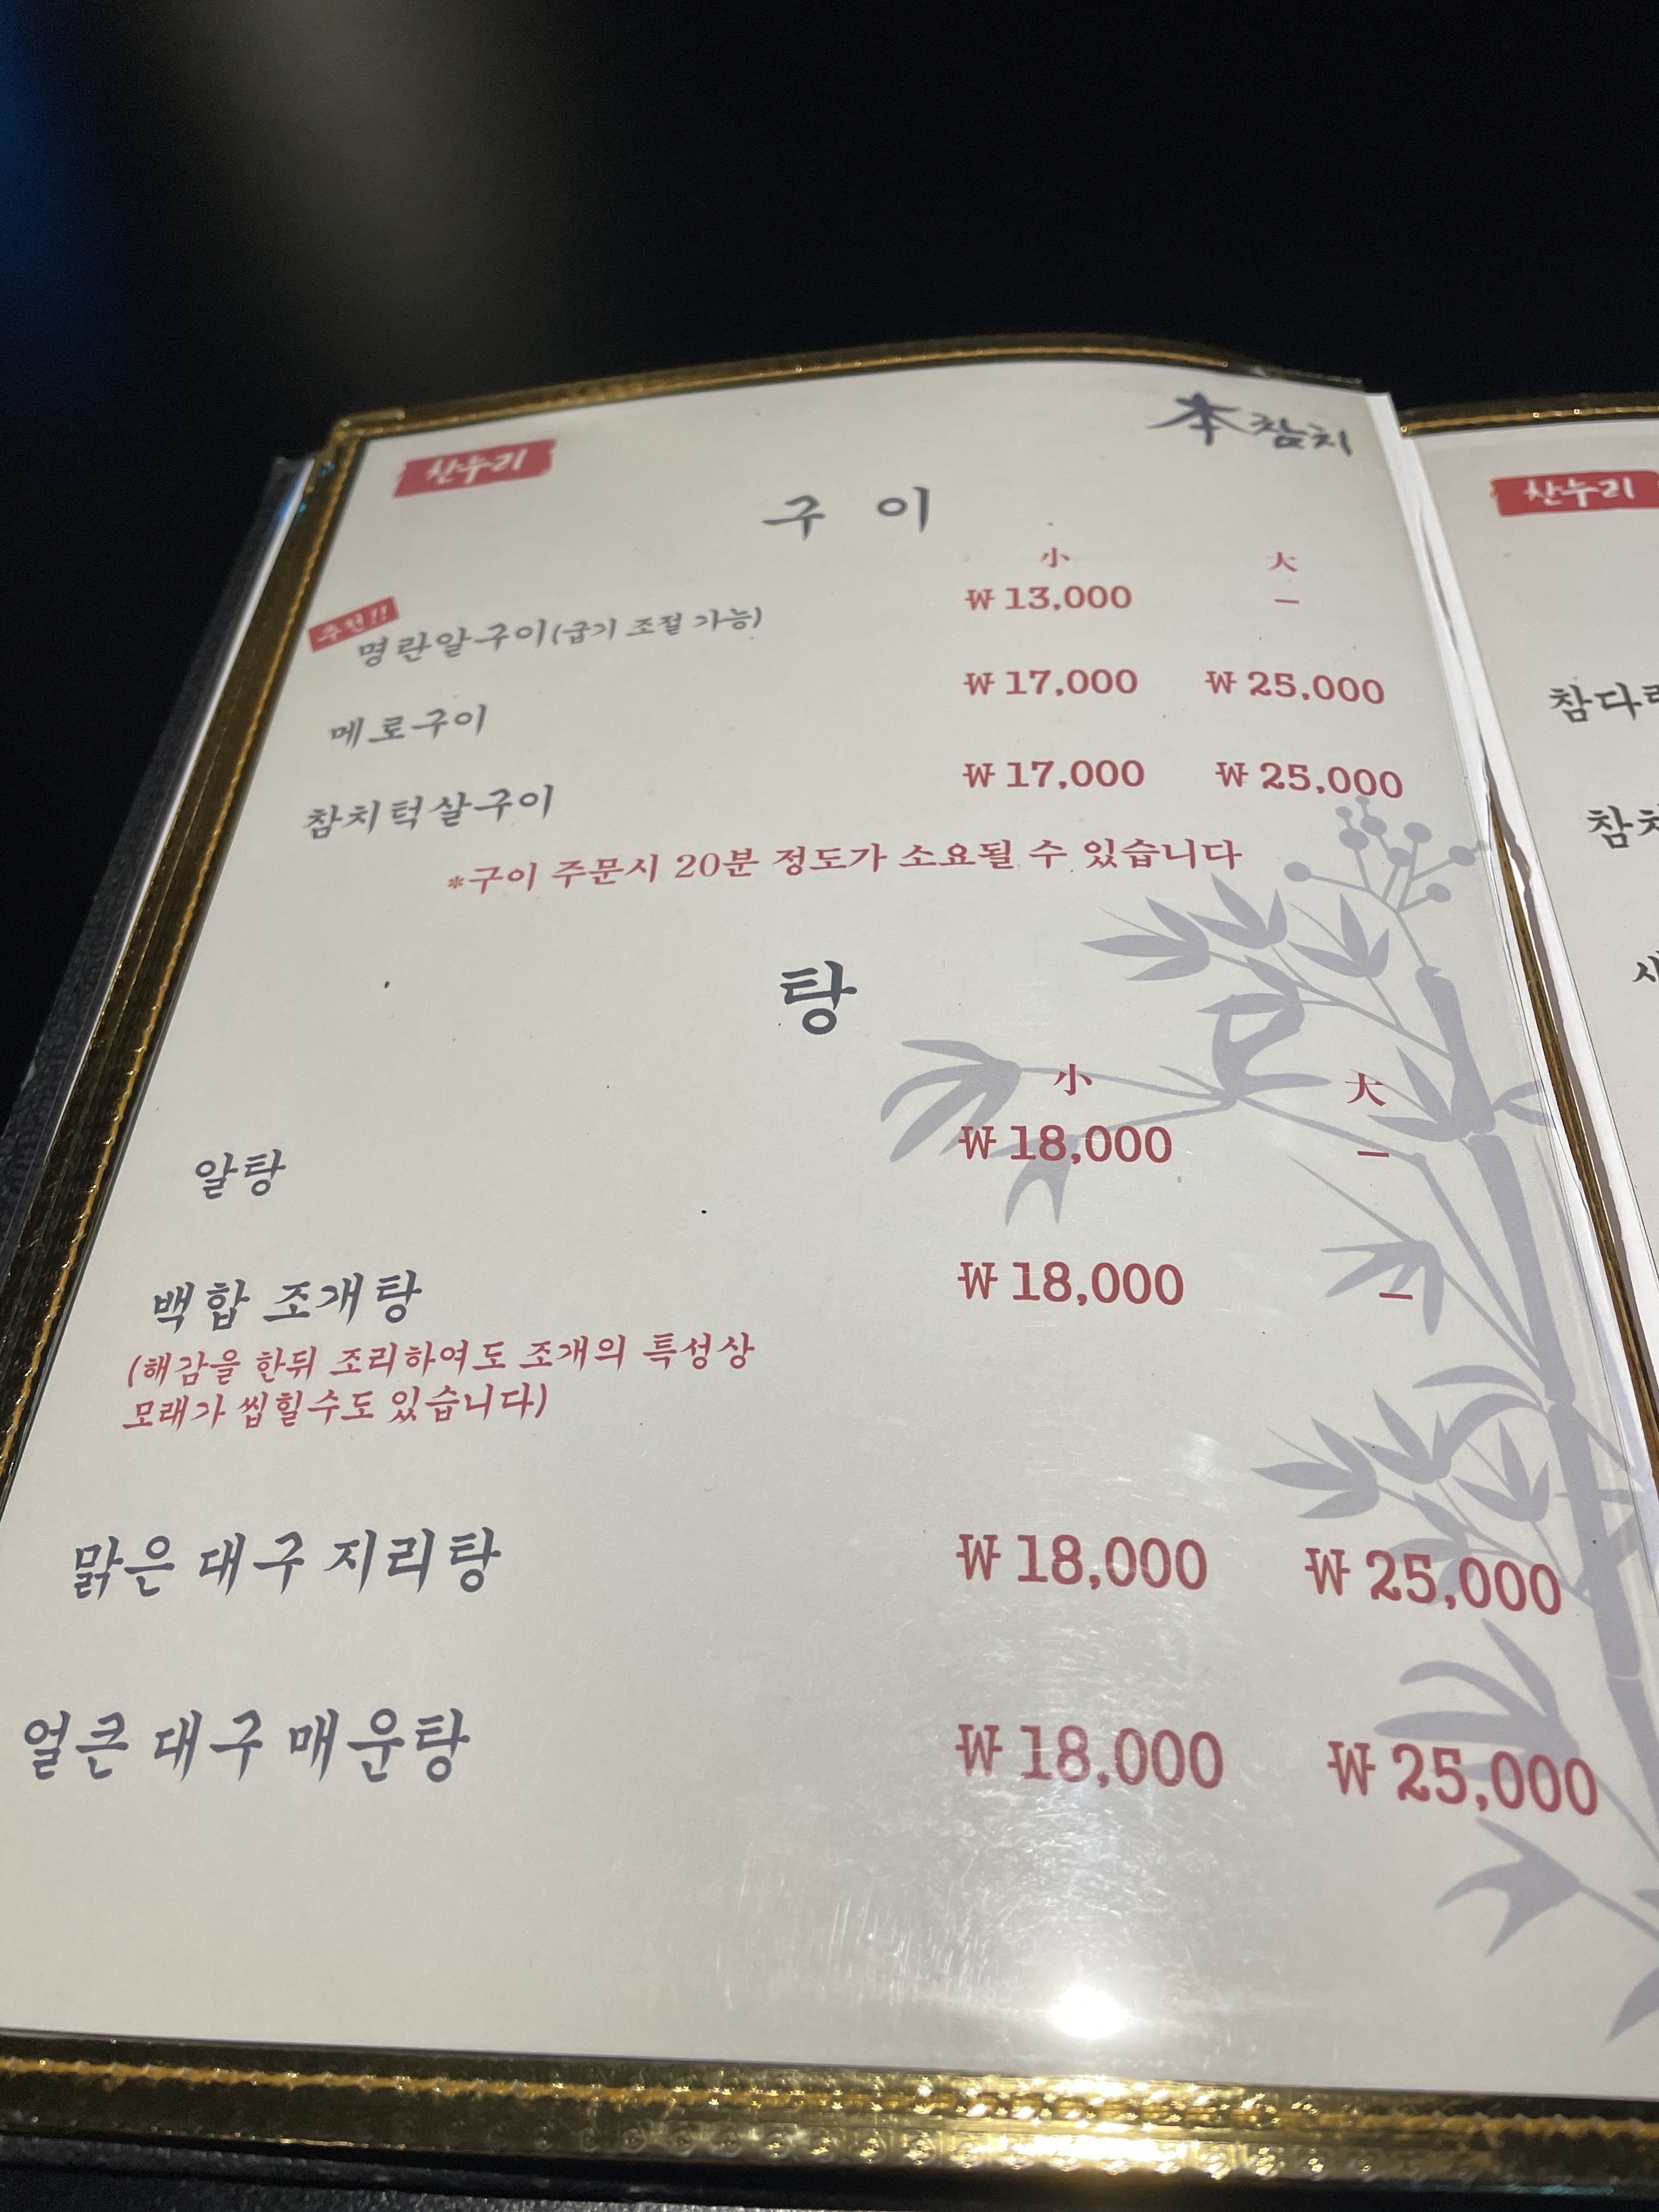 산누리
本참치
구이
小 大
추천!!
명란알구이(굽기 조절 가능) ₩13,000 –
메로구이 ₩17,000 ₩25,000
참치턱살구이 ₩17,000 ₩25,000
*구이 주문시 20분 정도가 소요될 수 있습니다
탕
小 大
알탕 ₩18,000 –
백합 조개탕 ₩18,000 –
(해감을 한뒤 조리하여도 조개의 특성상
모래가 씹힐수도 있습니다)
맑은 대구 지리탕 ₩18,000 ₩25,000
얼큰 대구 매운탕 ₩18,000 ₩25,000
산누리
참다
참치
새